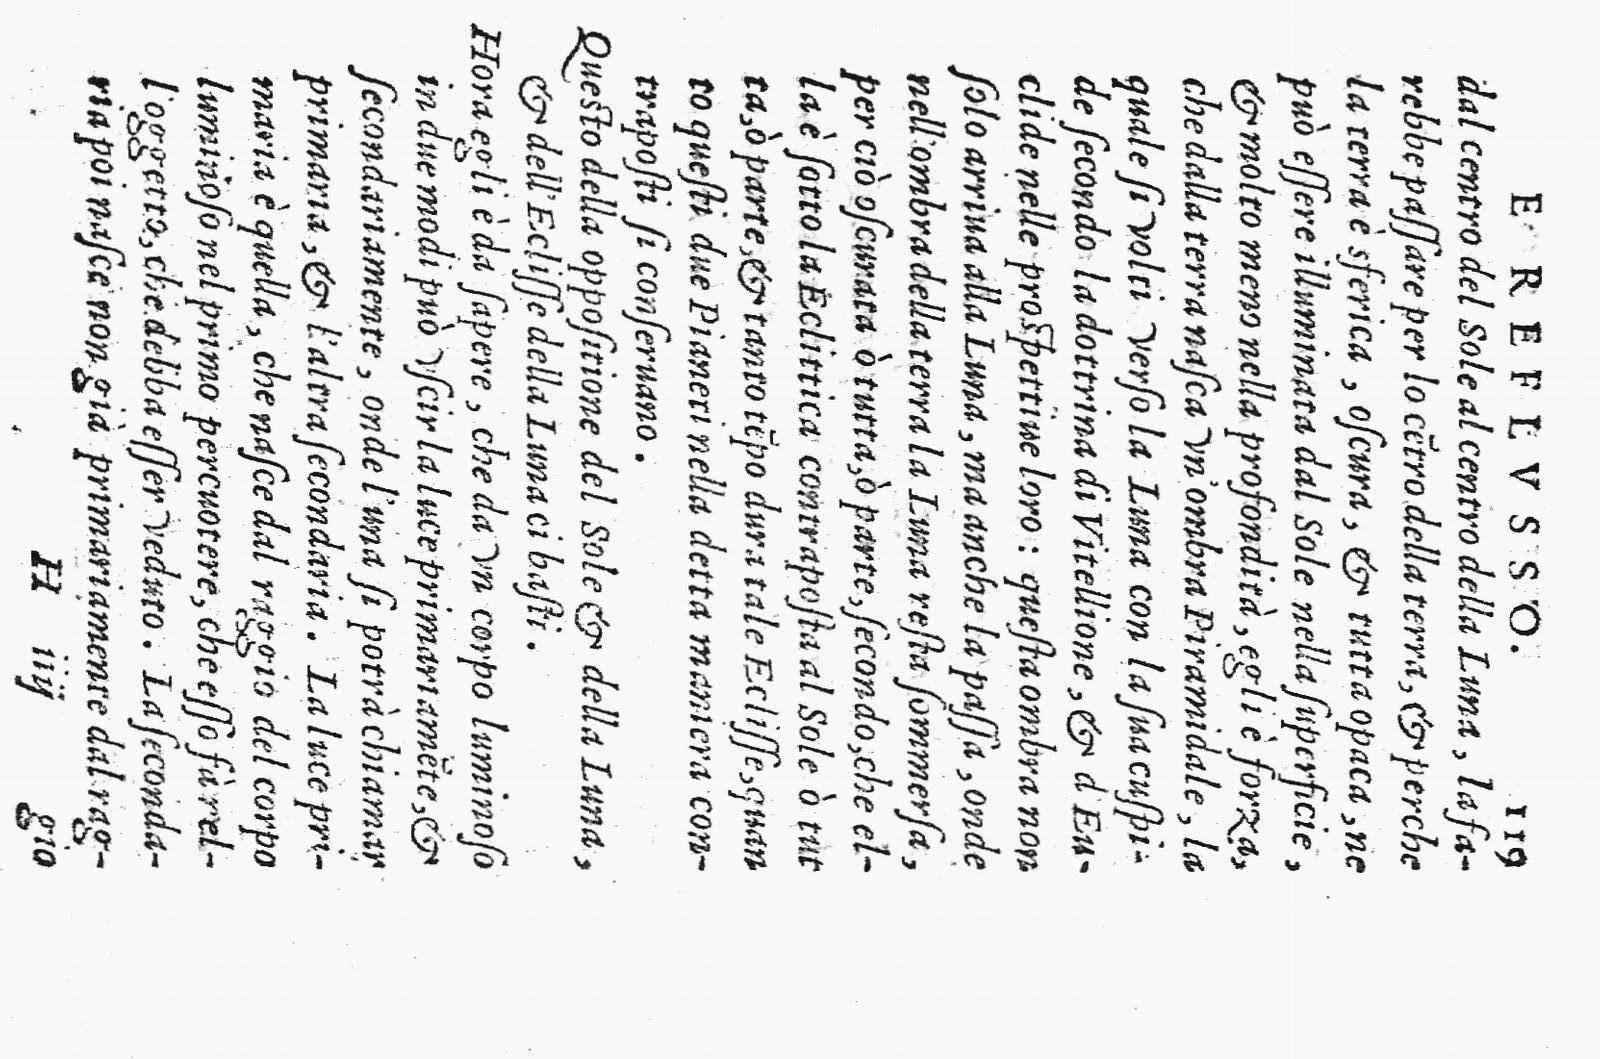 E REFLVSSO. 119
dal centro del Sole al centro della Luna, la ſa-
rebbe paſſare per lo cẽtro della terra, & perche
la terra è sferica, oſcura, & tutta opaca, ne
può eſſere illuminata dal Sole nella ſuperficie,
& molto meno nella profondità, egli è forza,
che dalla terra naſca vn'ombra Piramidale, la
quale ſi volti verſo la Luna con la ſua cuſpi-
de ſecondo la dottrina di Vitellione, & d'Eu-
clide nelle proſpettiue loro: queſta ombra non
ſolo arriua alla Luna, ma anche la paſſa, onde
nell'ombra della terra la Luna reſta ſommerſa,
per ciò oſcurata ò tutta, ò parte, ſecondo, che el-
la è ſotto la Eclittica contrapoſta al Sole ò tut
ta, ò parte, & tanto tẽpo dura tale Ecliſſe, quan
to queſti due Pianeti nella detta maniera con-
trapoſti ſi conſeruano.
Queſto della oppoſitione del Sole & della Luna,
& dell'Ecliſſe della Luna ci baſti.
Hora egli è da ſapere, che da vn corpo luminoſo
in due modi può vſcir la luce primariamẽte, &
ſecondariamente, onde l'una ſi potrà chiamar
primaria, & l'altra ſecondaria. La luce pri-
maria è quella, che naſce dal raggio del corpo
luminoſo nel primo percuotere, che eſſo fà nel-
l'oggetto, che debba eſſer veduto. La ſeconda-
ria poi naſce non già primariamente dal rag-
H iiij gio